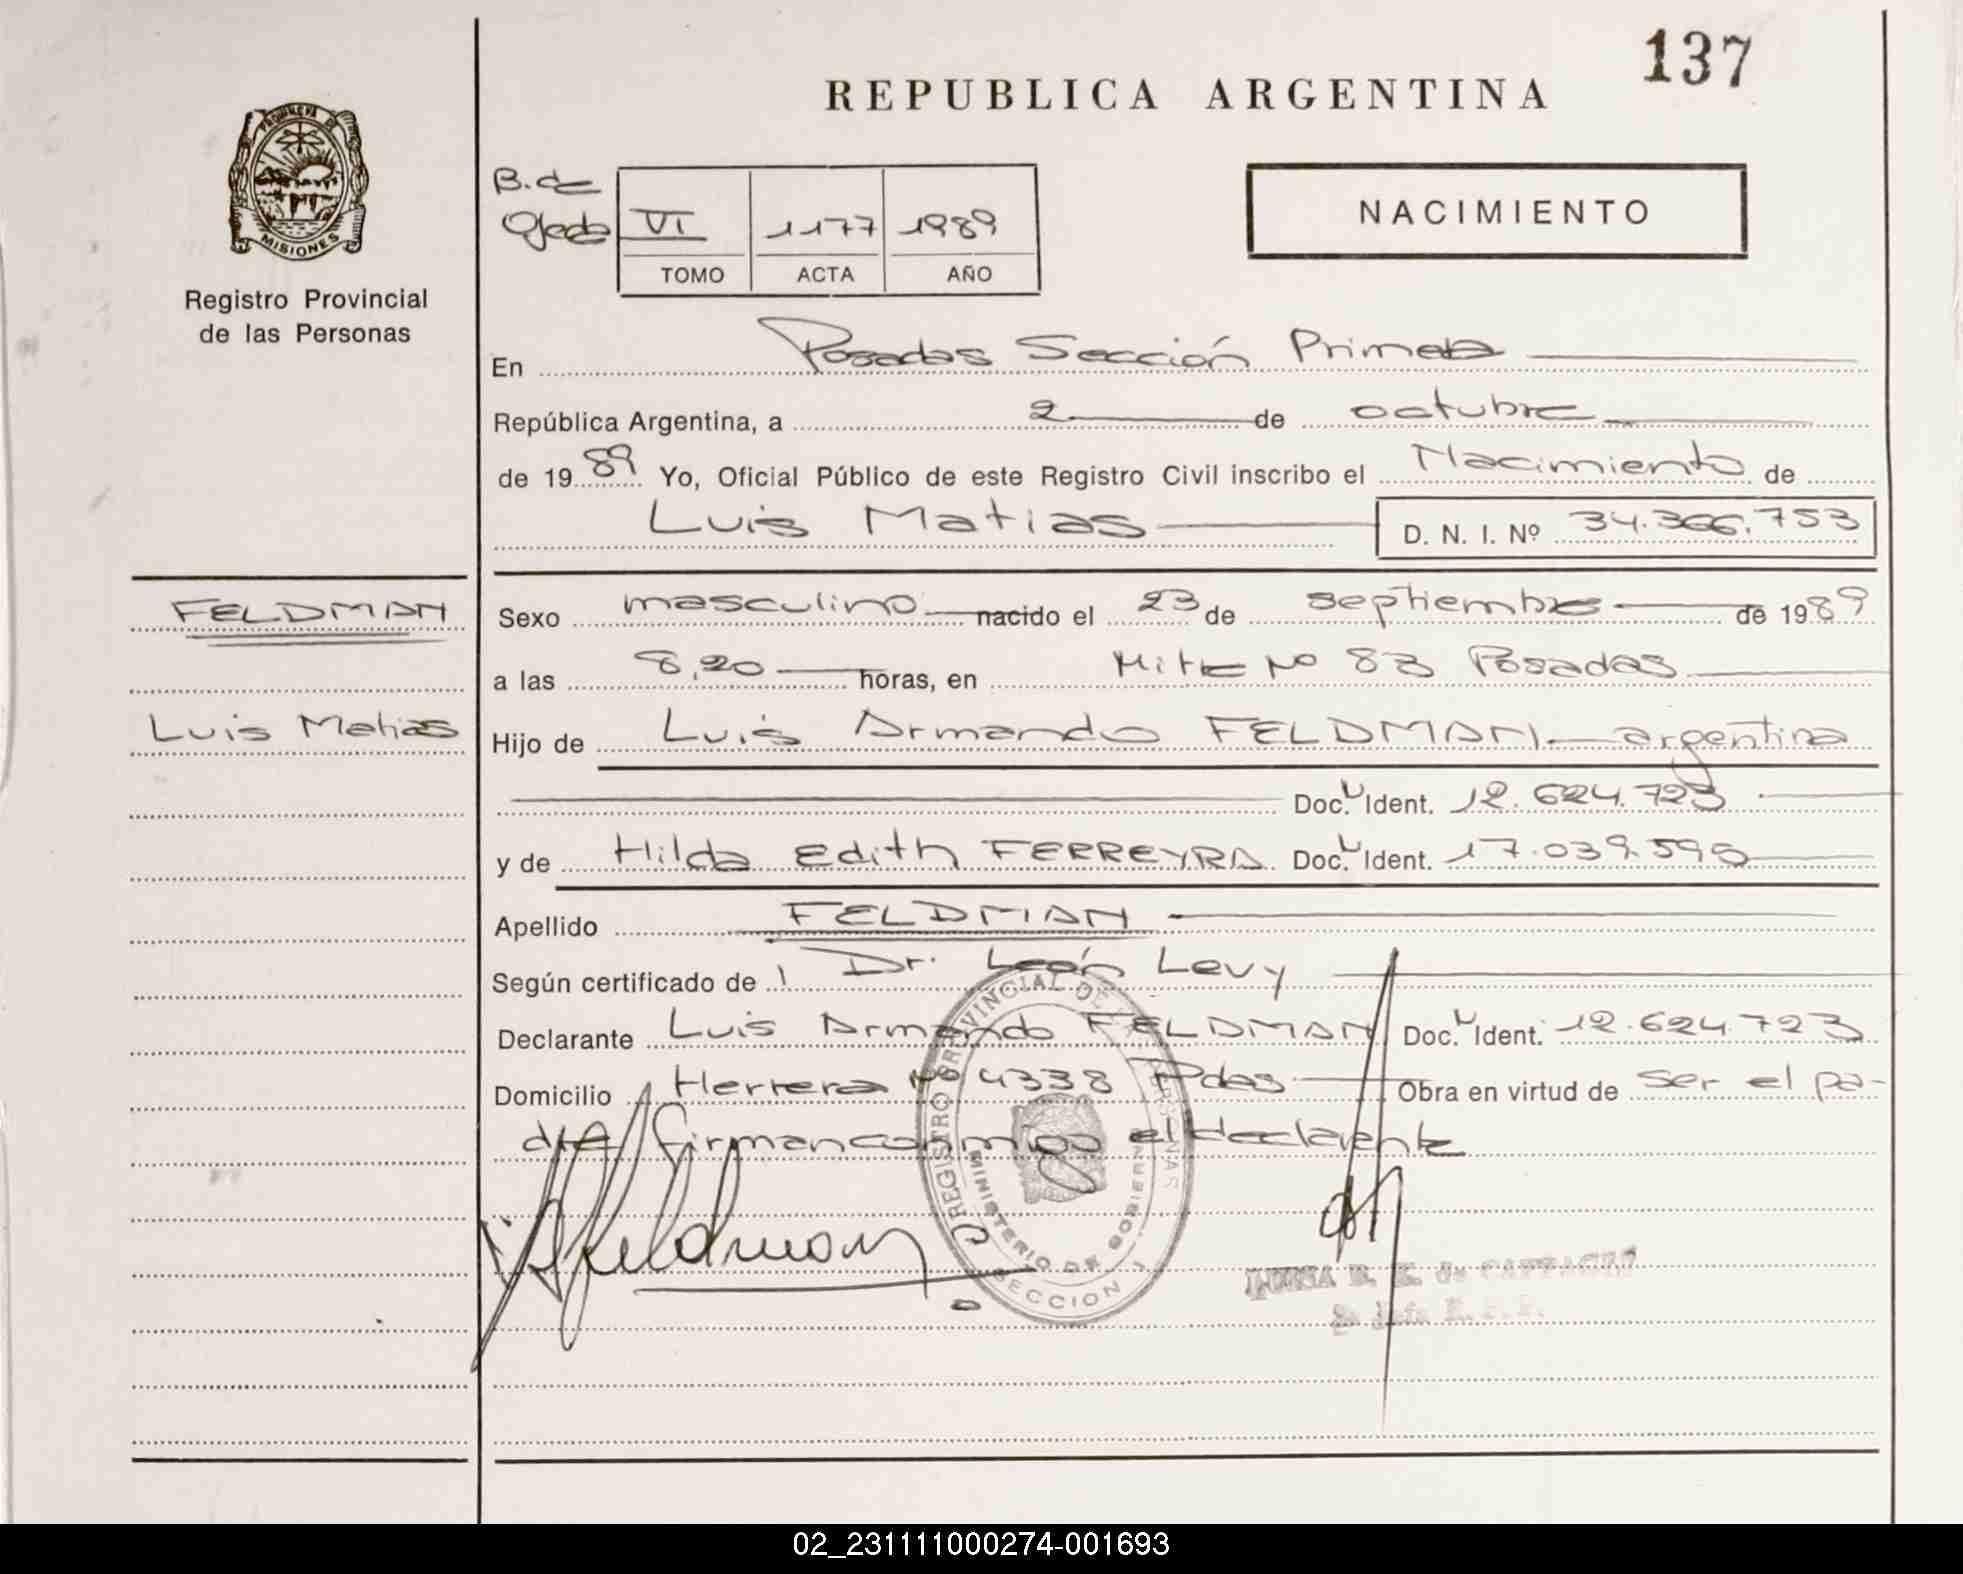 137
REPUBLICA ARGENTINA
PROVINCIA DE
MISIONES
Registro Provincial
de las Personas
B. de
Ojeda
VI 1177 1989
TOMO ACTA AÑO
NACIMIENTO
En Posadas Sección Primera
República Argentina, a 2 de octubre
de 1989 Yo, Oficial Público de este Registro Civil inscribo el Nacimiento de
Luis Matias D. N. I. Nº 34.366.753
FELDMAN
Sexo masculino nacido el 23 de septiembre de 1989
a las 8,20 horas, en Mitre Nº 83 Posadas
Luis Matias
Hijo de Luis Armando FELDMAN argentina
Doc. Ident. 12.624.723
y de Hilda Edith FERREYRA Doc. Ident. 17.039.595
Apellido FELDMAN
Según certificado de Dr. León Levy
Declarante Luis Armando FELDMAN Doc. Ident. 12.624.723
Domicilio Herrera Nº 4338 Pdas Obra en virtud de ser el pa-
dre firman conmigo el declarante
REGISTRO PROVINCIAL DE LAS PERSONAS
MINISTERIO DE GOBIERNO
SECCION 1
Feldman
R. P. P.
02_231111000274-001693